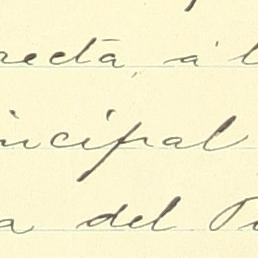 recta, á l
ncipal
a del P